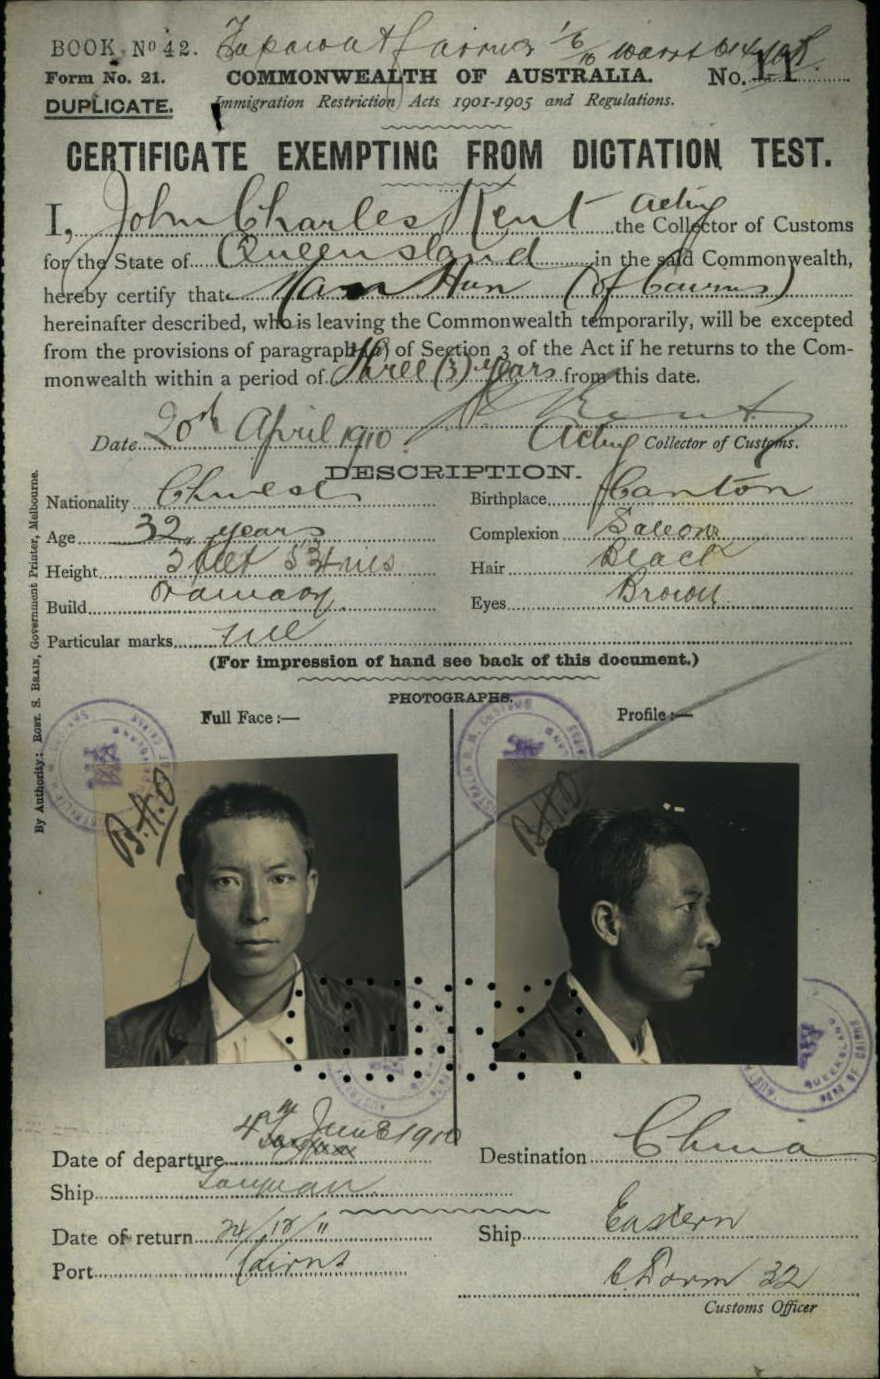 BOOK No 42.
Form No. 21. COMMONWEALTH OF AUSTRALIA. No. 11
DUPLICATE. Immigration Restriction Acts 1901-1905 and Regulations.
CERTIFICATE EXEMPTING FROM DICTATION TEST.
I, John Charles Kent Acting the Collector of Customs
for the State of Queensland in the said Commonwealth,
hereby certify that Hun (of Cairns)
hereinafter described, who is leaving the Commonwealth temporarily, will be excepted
from the provisions of paragraph (a) of Section 3 of the Act if he returns to the Com-
monwealth within a period of three (3) years from this date.
Date 20th April 1910. Kent
Acting Collector of Customs.
DESCRIPTION.
Nationality Chinese Birthplace Canton
Age 32 years Complexion
Height 5 feet Hair Black
Build Ordinary Eyes Brown
Particular marks nil
(For impression of hand see back of this document.)
PHOTOGRAPHS.
Full Face:— Profile:—
B.H.O
B.H.O
By Authority: Robt. S. Brain, Government Printer, Melbourne.
Date of departure 4th June 1910 Destination China
Ship Taiyuan
Date of return 24/12/11 Ship Eastern
Port Cairns
32
Customs Officer